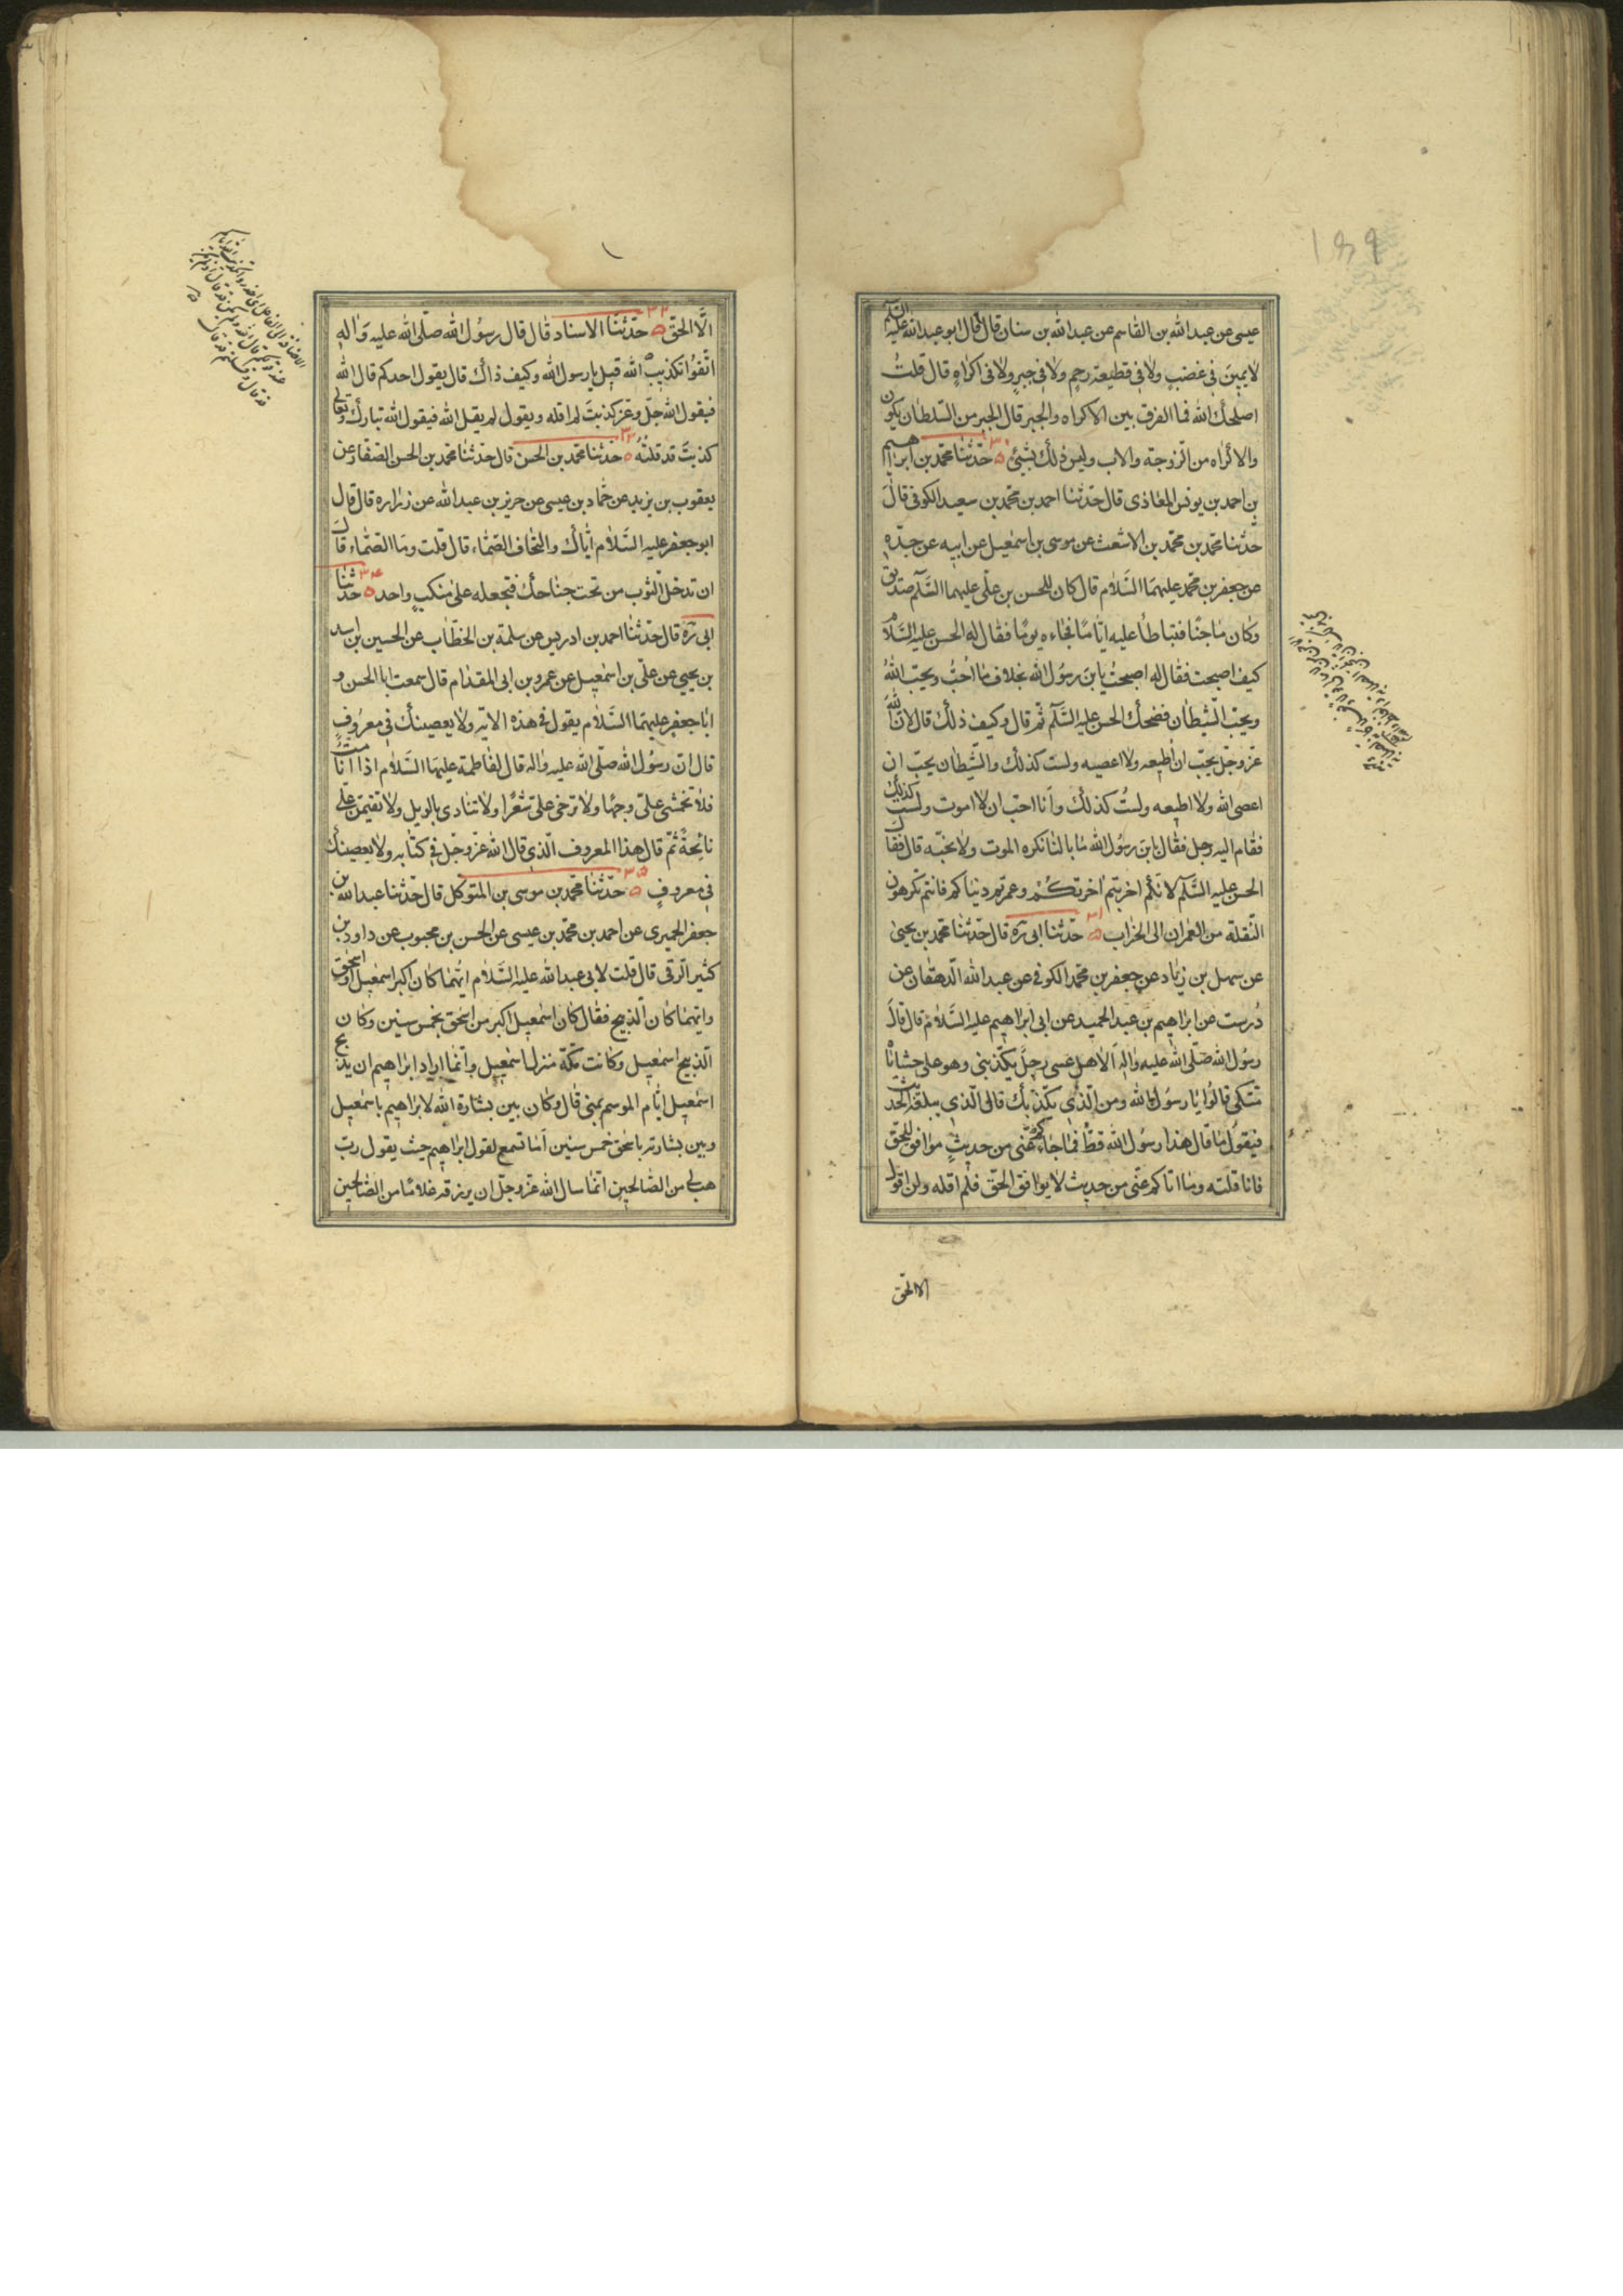 عيسى عن عبدالله بن القاسم عن عبدالله بن سنان قال قال ابو عبدالله عليه السّلم
لا يمين فى غضب ولا فى قطيعة رحم ولا فى جبر ولا فى اكراه قال قلت
اصلحك الله فما الفرق بين الاكراه والجبر قال الجبر من السّلطان يكون
والاكراه من الزوجة والاب وليس ذلك بشيئ ۳۰ حدّثنا محمّد بن ابراهيم
بن احمد بن يونس المعاذى قال حدّثنا احمد بن محمّد بن سعيد الكوفى قال
حدّثنا محمّد بن محمّد بن الاشعث عن موسى بن اسمعيل عن ابيه عن جدّه
عن جعفر بن محمّد عليهما السّلام قال كان للحسن بن علّى عليهما السّلم صديق
وكان ماجنًا فتباطأ عليه ايّامًا فجاءه يومًا فقال له الحسن عليه السّلام
كيف اصبحت فقال له اصبحتُ يابن رسول الله بخلاف ما اُحبُّ ويحبّ اللهُ
ويحبّ الشّيطان فضحك الحسن عليه السّلم ثمّ قال وكيف ذلك قال لانّ اللهَ
عزّ وجلّ يحبّ ان اُطيعه ولا اعصيه ولست كذلك والشّيطان يحبّ ان
اعصى الله ولا اطيعه ولستُ كذلك وانا احبّ ان لا اموت ولست كذلك
فقام اليه رجل فقال يابن رسول الله ما بالنا نكره الموت ولا نحبّه قال فقال
الحسن عليه السّلم لانّكم اخربتم اخرتكم وعمرتم دنياكم فانتم تكرهون
النّقلة من العمران الى الخراب ۳۱ حدّثنا ابى ره قال حدّثنا محمّد بن يحيى
عن سهل بن زياد عن جعفر بن محمّد الكوفى عن عبدالله الدّهقان عن
دُرست عن ابراهيم بن عبدالحميد عن ابى ابراهيم عليه السّلام قال قال
رسول الله صلّى الله عليه واله الا هل عسى رجل يكذّبنى وهو على حشاياه
متكى قالوا يا رسول الله ومن الّذى يكذّبك قال الّذى يبلغه الحديث
فيقول ما قال هذا رسول الله قطّ فما جاءكم عنّى من حديثٍ موافق للحقّ
فانا قلته وما اتاكم عنّى من حديث لا يوافق الحقّ فلم اقله ولن اقول
الا الحق
الّا الحقّ ۳۲ حدّثنا الاسناد قال قال رسُول الله صلّى الله عليه واله
اتّقوا تكذيب الله قيل يا رسول الله وكيف ذاك قال يقول احدكم قال الله
فيقول الله جلّ وعزّ كذبتَ لم اقله ويقول لم يقل الله فيقول الله تبارك وتعالى
كذبتَ قد قلتُه ۳۳ حدّثنا محمّد بن الحسن قال حدّثنا محمّد بن الحسن الصّفار عن
يعقوب بن يزيد عن حمّاد بن عيسى عن حريز بن عبدالله عن زراره قال قال
ابو جعفر عليه السّلام ايّاك والتحاف الصّمّاء قال قلت وما الصّمّاء قال
ان تدخل الثّوب من تحت جناحك فتجعله على منكبٍ واحد ۳۴ حدّثنا
ابى ره قال حدّثنا احمد بن ادريس عن سلمة بن الخطّاب عن الحسين بن راشد
بن يحيى عن علّى بن اسمعيل عن عمرو بن ابى المقدام قال سمعت ابا الحسن و
ابا جعفر عليهما السّلام يقول فى هذه الاية ولا يعصينك فى معروفٍ
قال انّ رسُول الله صلّى الله عليه واله قال لفاطمة عليها السّلام اذا انا متّ
فلا تخمشى علىّ وجهًا ولا ترخى علىّ شعرًا ولا تنادى بالويل ولا تقيمنّ علىّ
نائحةً ثمّ قال هذا المعروف الّذى قال الله عزّ وجلّ فى كتابه ولا يعصينك
فى معروفٍ ۳۵ حدّثنا محمّد بن موسى بن المتوكل قال حدّثنا عبدالله بن
جعفر الحميرى عن احمد بن محمّد بن عيسى عن الحسن بن محبوب عن داود بن
كثير الرّقى قال قلت لابى عبدالله عليه السّلام ايّهما كان اكبر اسمعيل او اسحق
وايّهما كان الّذبيح فقال كان اسمعيل اكبر من اسحق بخمس سنين وكان
الّذبيح اسمعيل وكانت مكّة منزل اسمعيل وانّما اراد ابراهيم ان يذبح
اسمعيل ايّام الموسم بمنى قال وكان بين بشارة الله لابراهيم باسمعيل
وبين بشارته باسحق خمس سنين اما تسمع لقول ابراهيم حيث يقول ربّ
هب لى من الصّالحين انّما سال الله عزّ وجلّ ان يرزقه غلامًا من الصّالحين